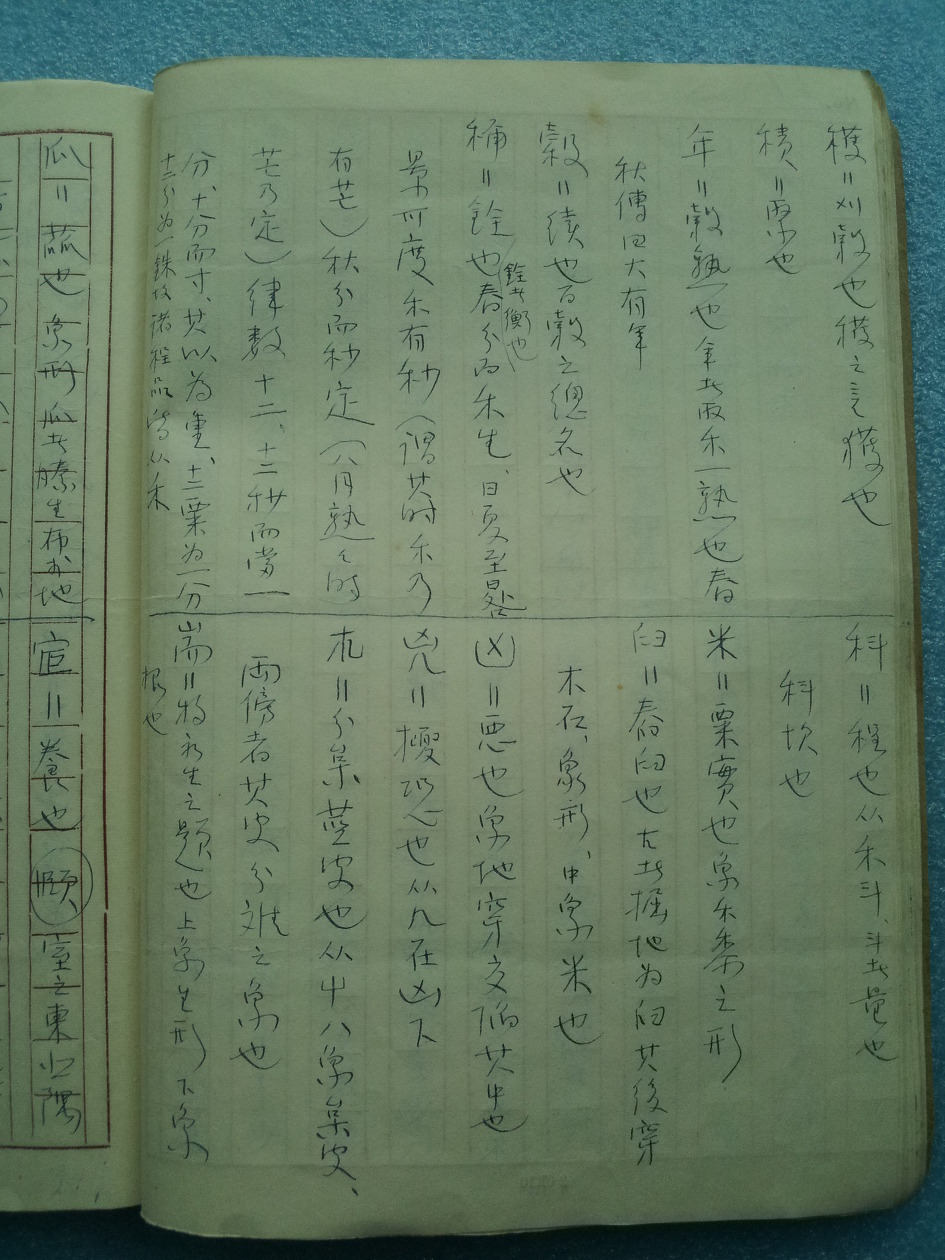 穫＝刈穀也穫之言獲也
積＝聚也
年＝穀熟也年者取禾一熟也春
秋傳曰大有年
穀＝續也百穀之總名也
稱＝銓也春分而禾生、日夏至晷
銓者衡也
景可度禾有秒（謂其時禾乃
有芒）秋分而秒定（八月熟之時
芒乃定）律數十二、十二秒而當一
分、十分而寸、其以為重、十二粟為一分
十二分為一銖故諸程品皆从禾
科＝程也从禾斗、斗者量也
科坎也
米＝粟實也象禾黍之形
臼＝舂臼也古者掘地為臼其後穿
木石、象形、中象米也
凶＝惡也象地穿交陷其中也
兇＝擾恐也从儿在凶下
朩＝分枲莖皮也从屮八象枲皮、
兩傍者其皮分離之象也
耑＝物初生之題也上象生形下象
根也
瓜＝蓏也象形瓜者縢生布於地
宧＝養也（頤）室之東北隅